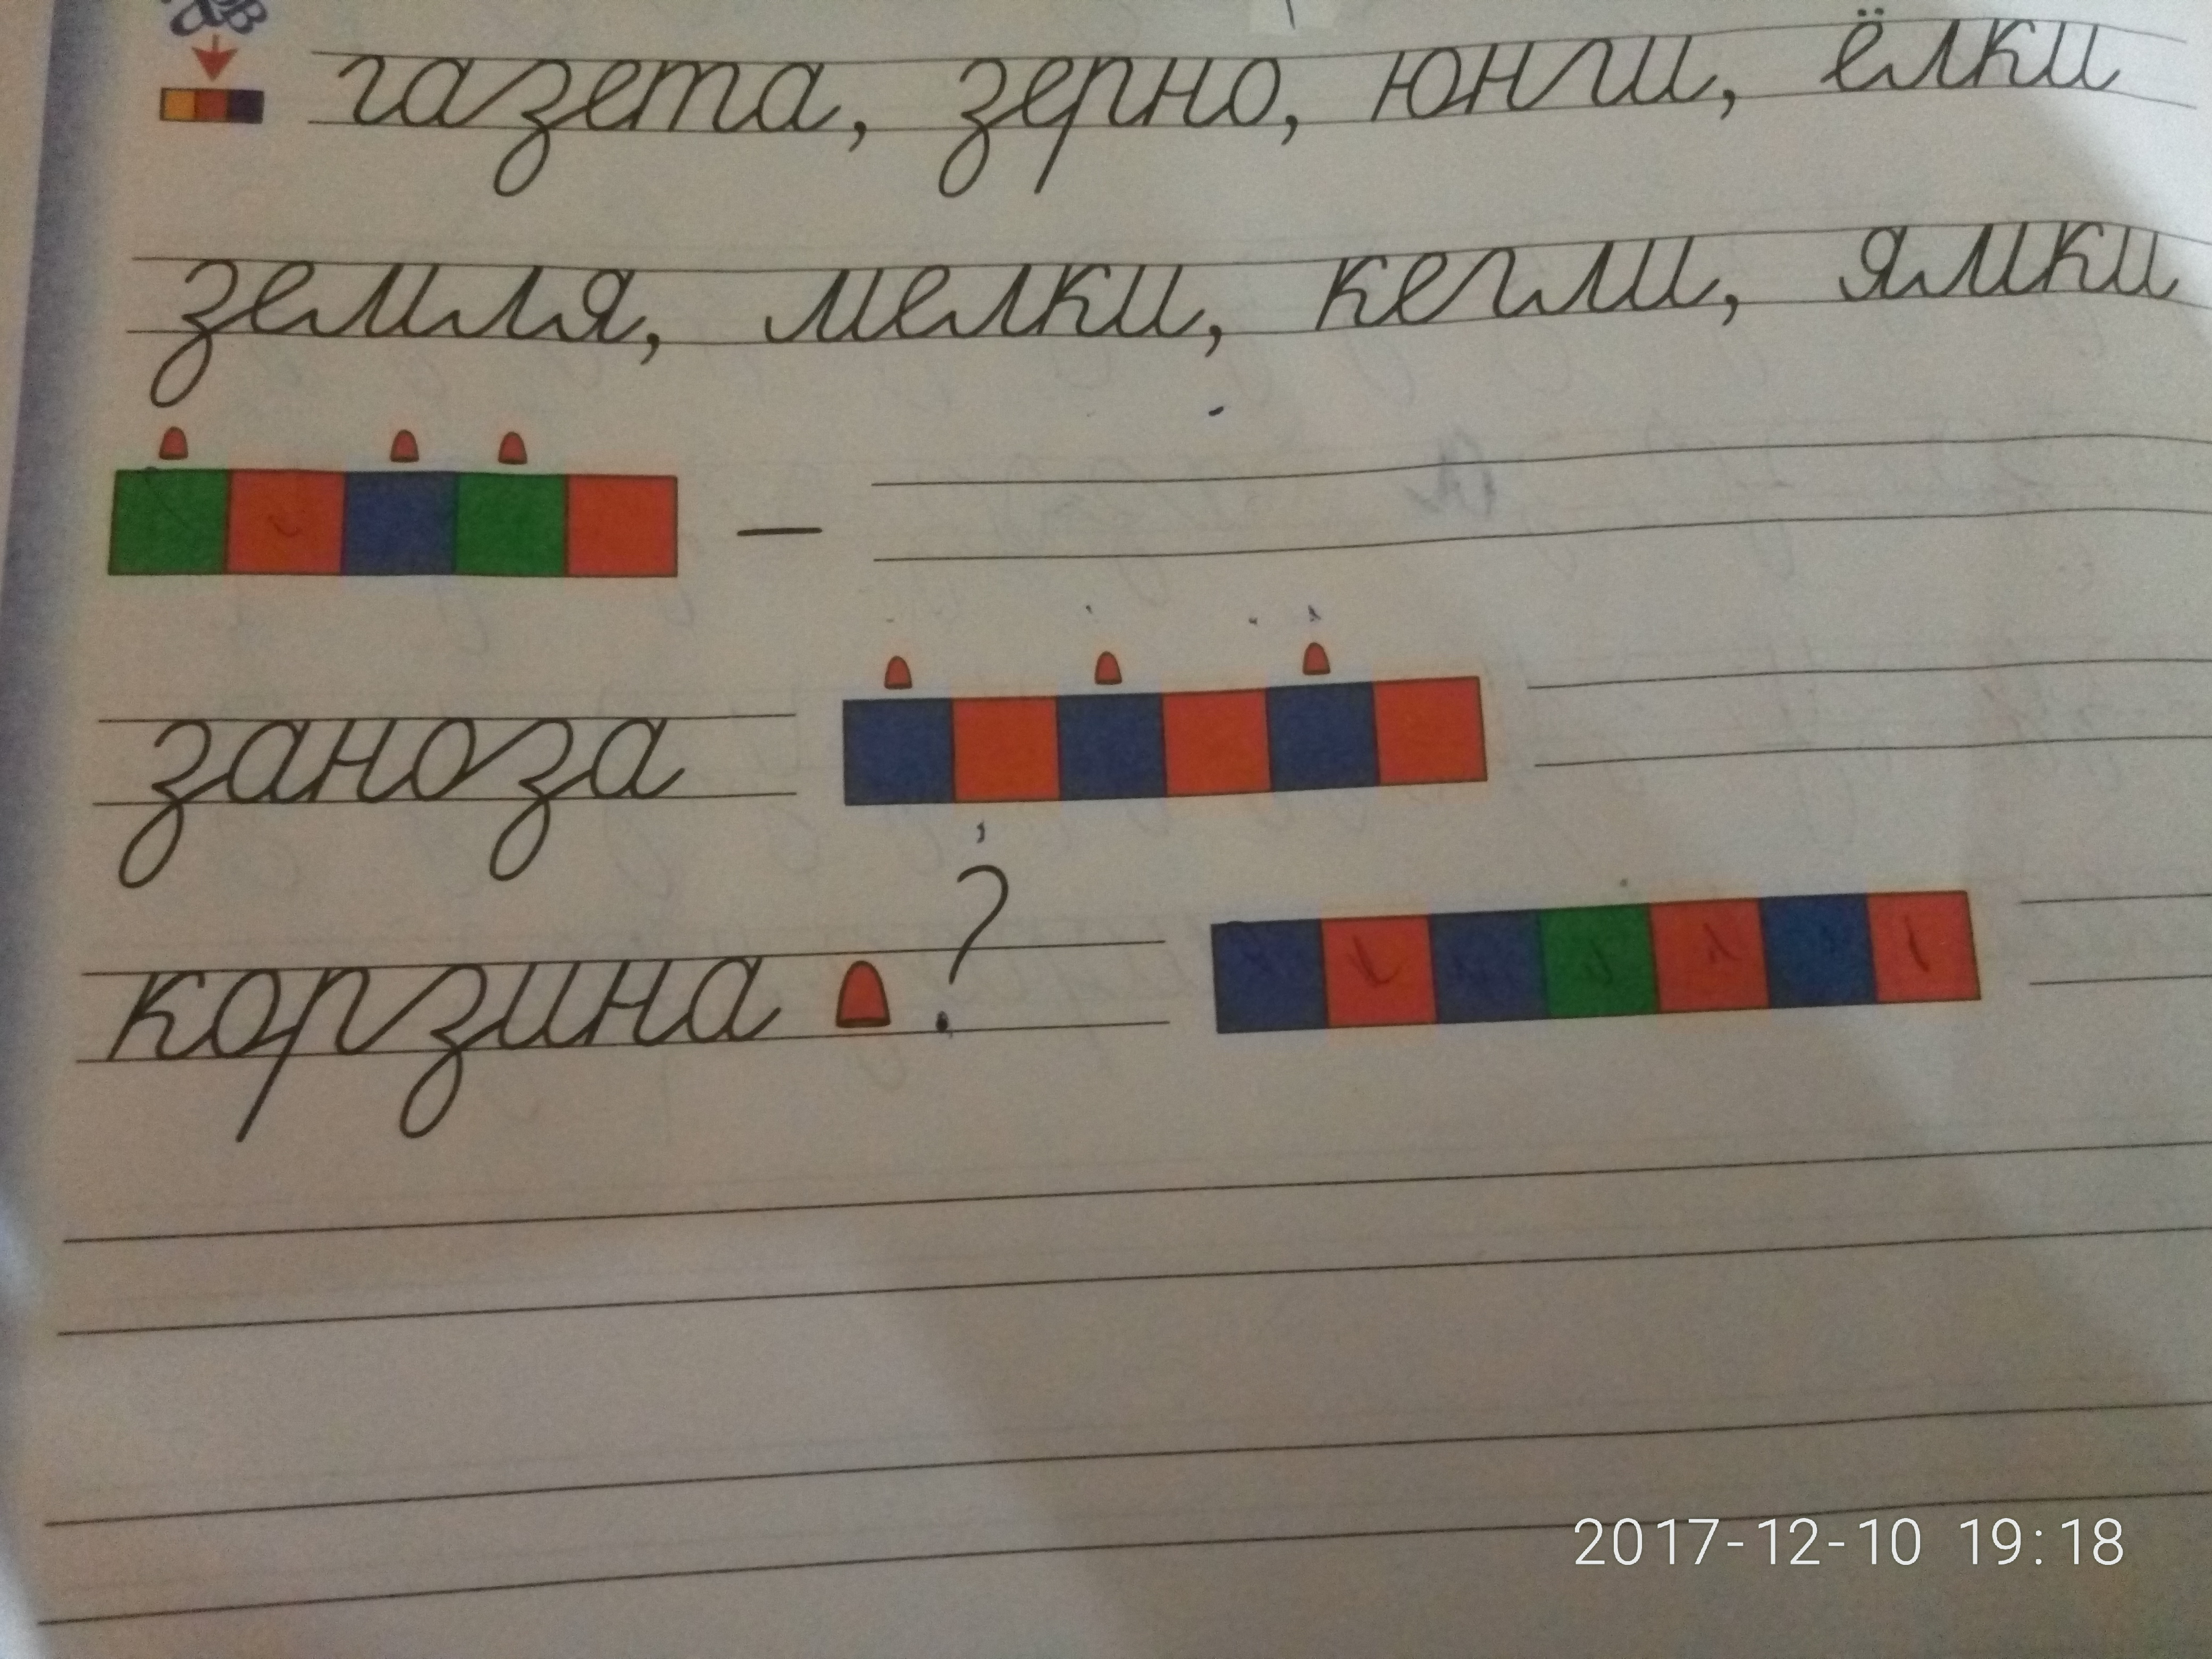 газета, зерно, юнги, ёлки
земля, мелки, кегли, ямки
—
заноза
корзина ?
2017-12-10 19:18